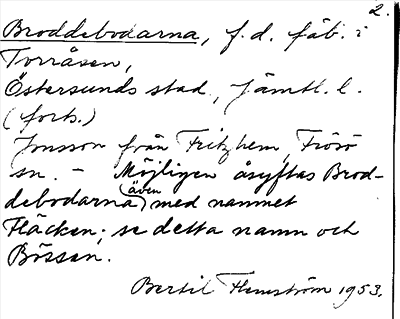 2.
Broddebodarna, f.d. fäb. i
Torråsen,
Östersunds stad, Jämtl. l.
(forts.)
Jonsson från Fritzhem, Frösö
sn. – Möjligen åsyftas Brod-
debodarna (även) med namnet
Fläcken; se detta namn och
Bössen.
Bertil Flemström 1953.